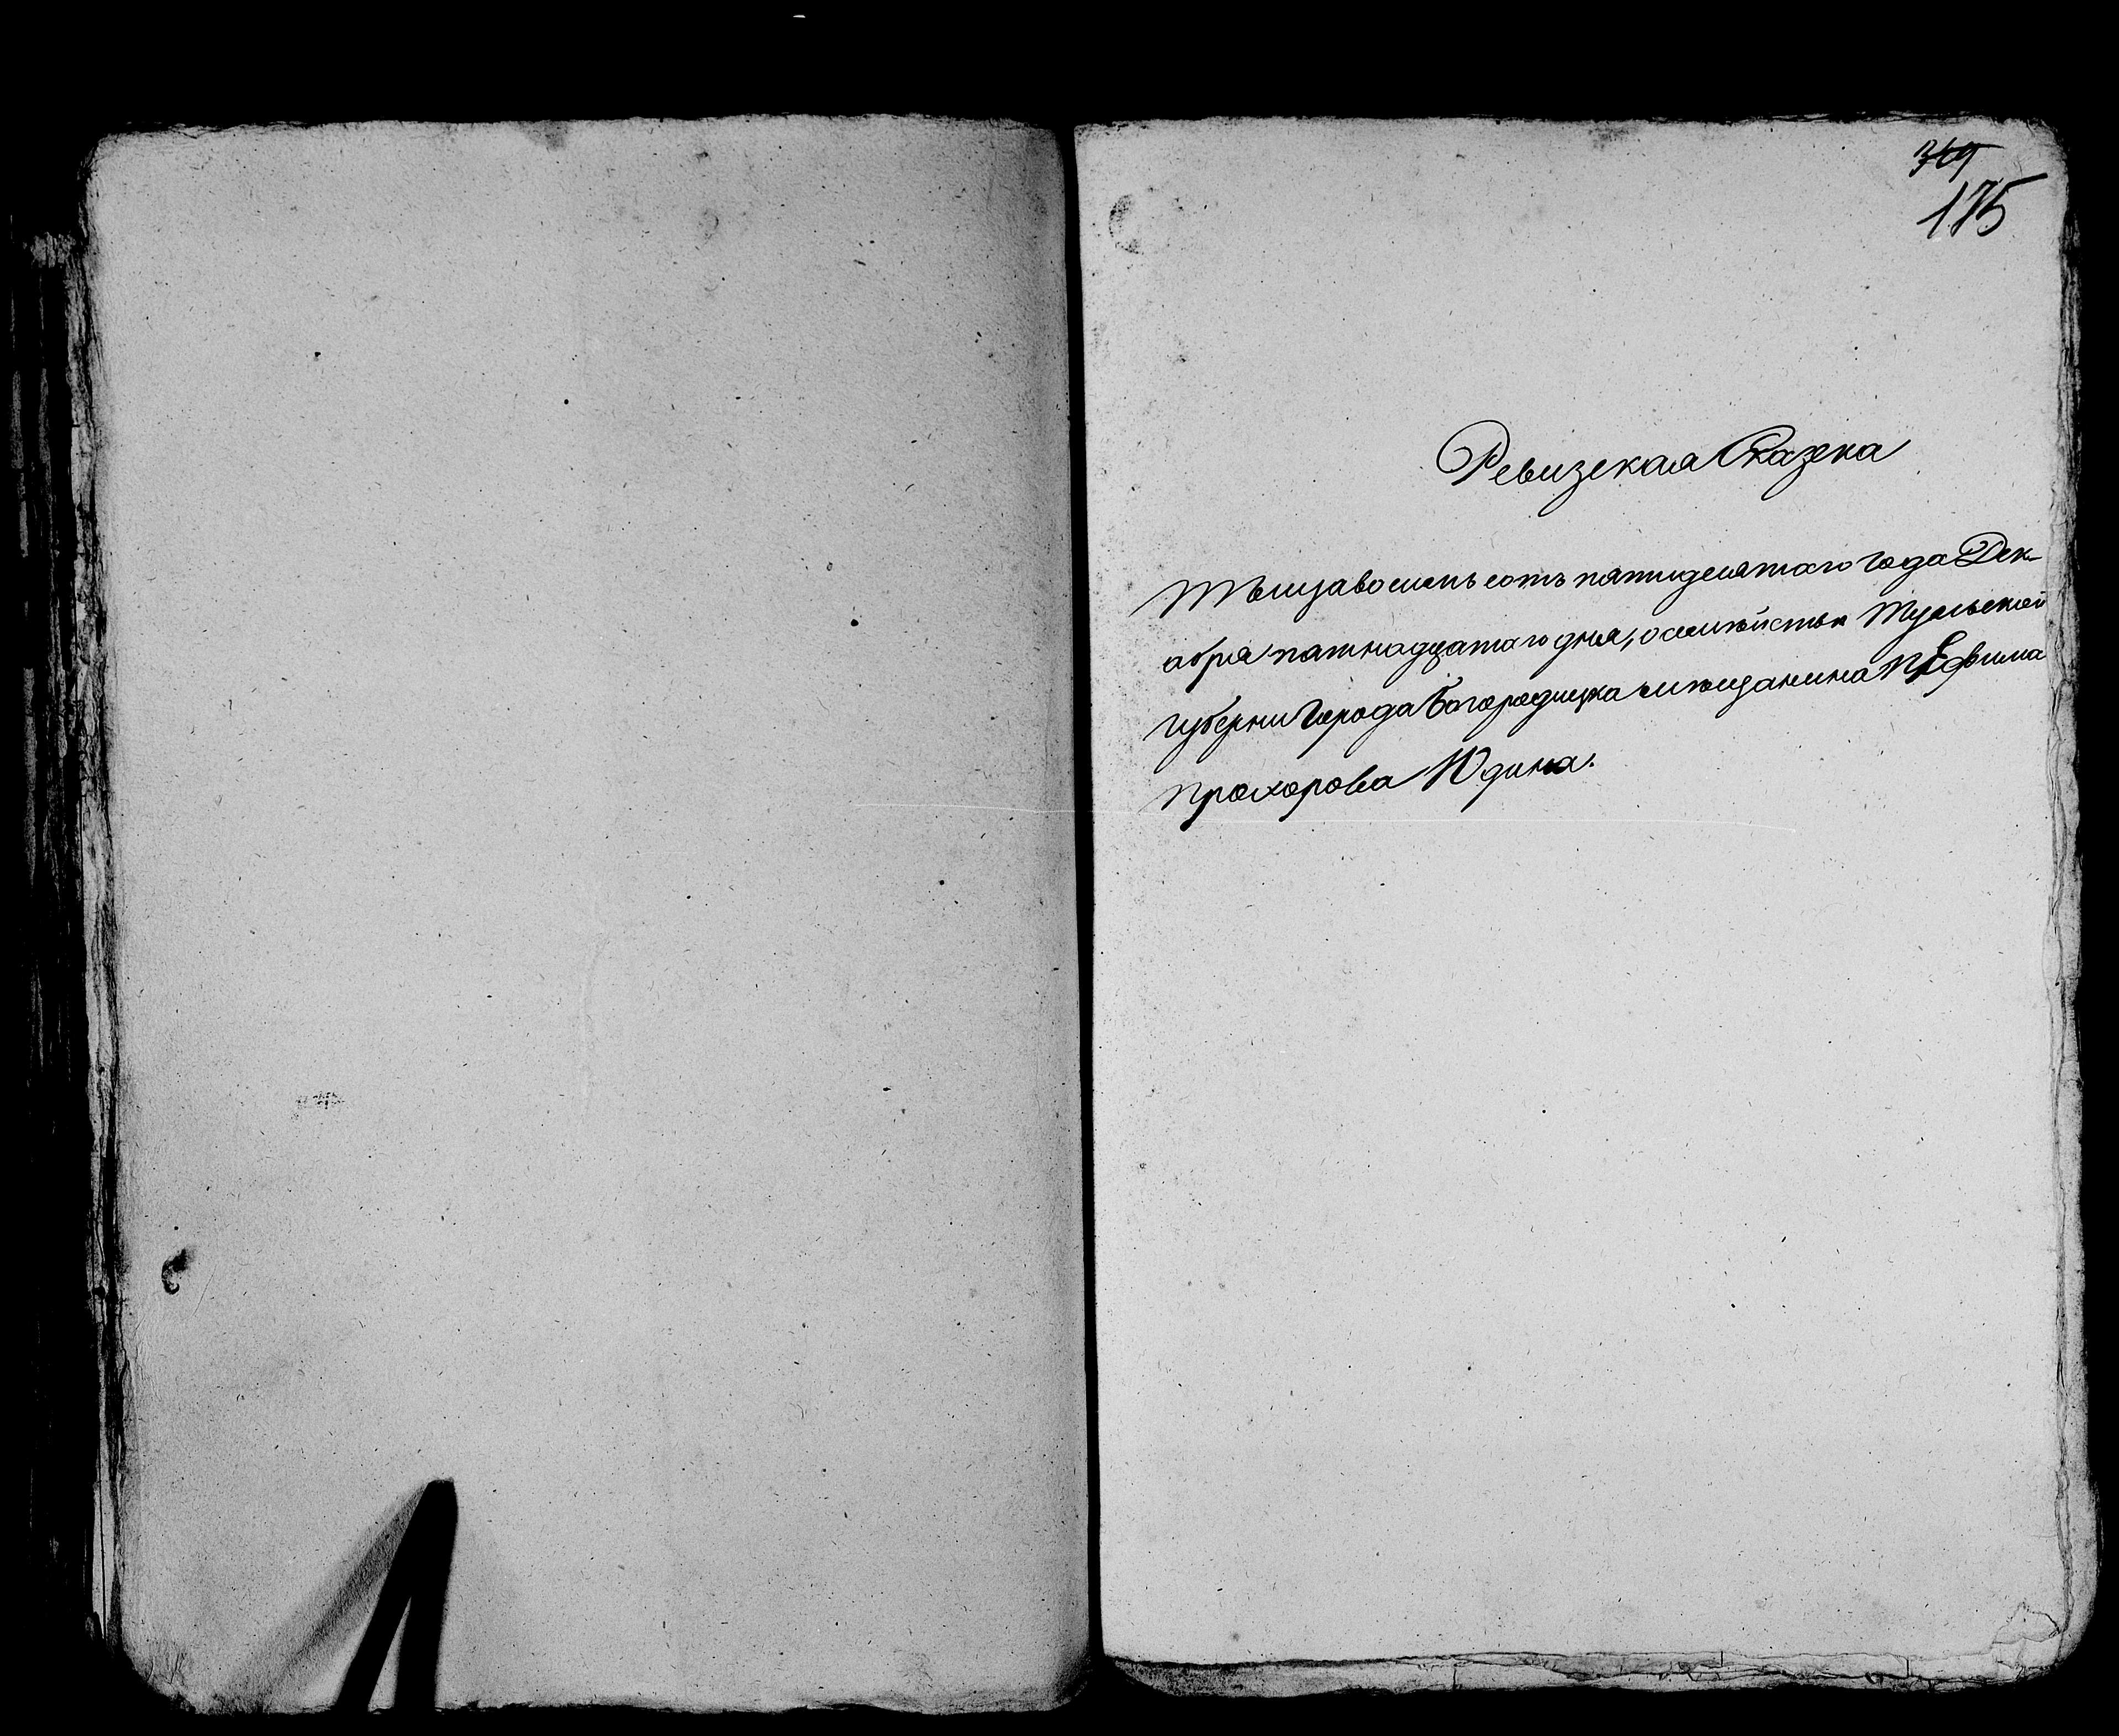 175
Ревизская Сказска
Тысща восемь сотъ пятидесятаго года Дек-
абря патнадцатаго дня, о семѣйстве Тульской
губерни Города Богородицка мѣщанина Ефима
Прохорова Юдина.